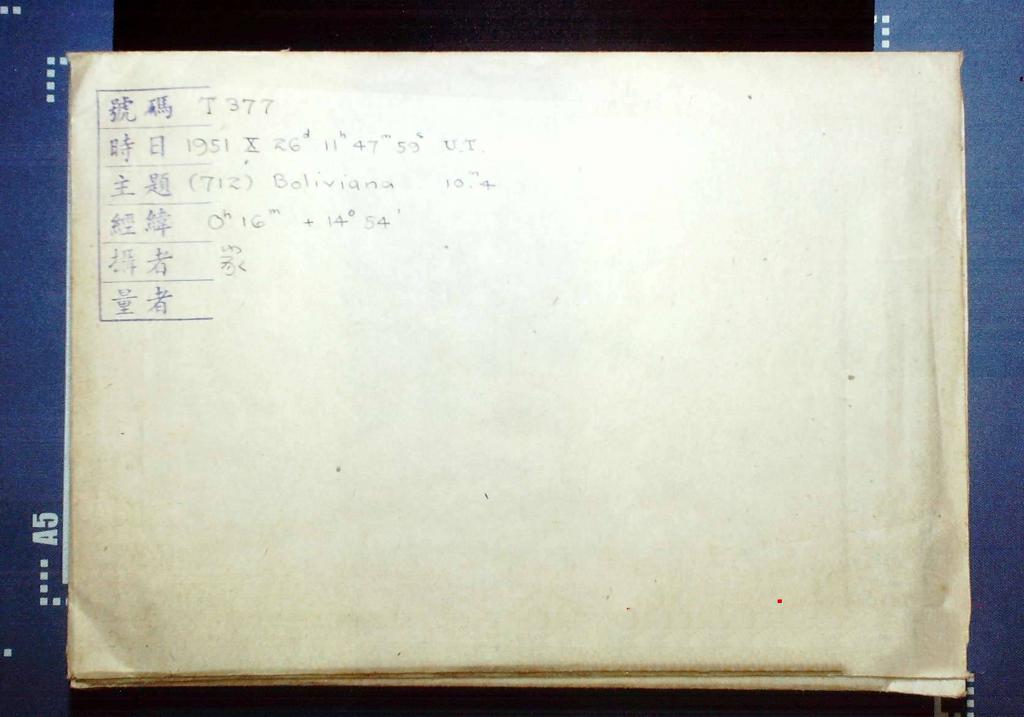 號碼 T 377
時日 1951 X 26ᵈ 11ʰ 47ᵐ 59ˢ U.T.
主題 (712) Boliviana 10.ᵐ4
經緯 0ʰ 16ᵐ + 14° 54'
攝者
量者
A5